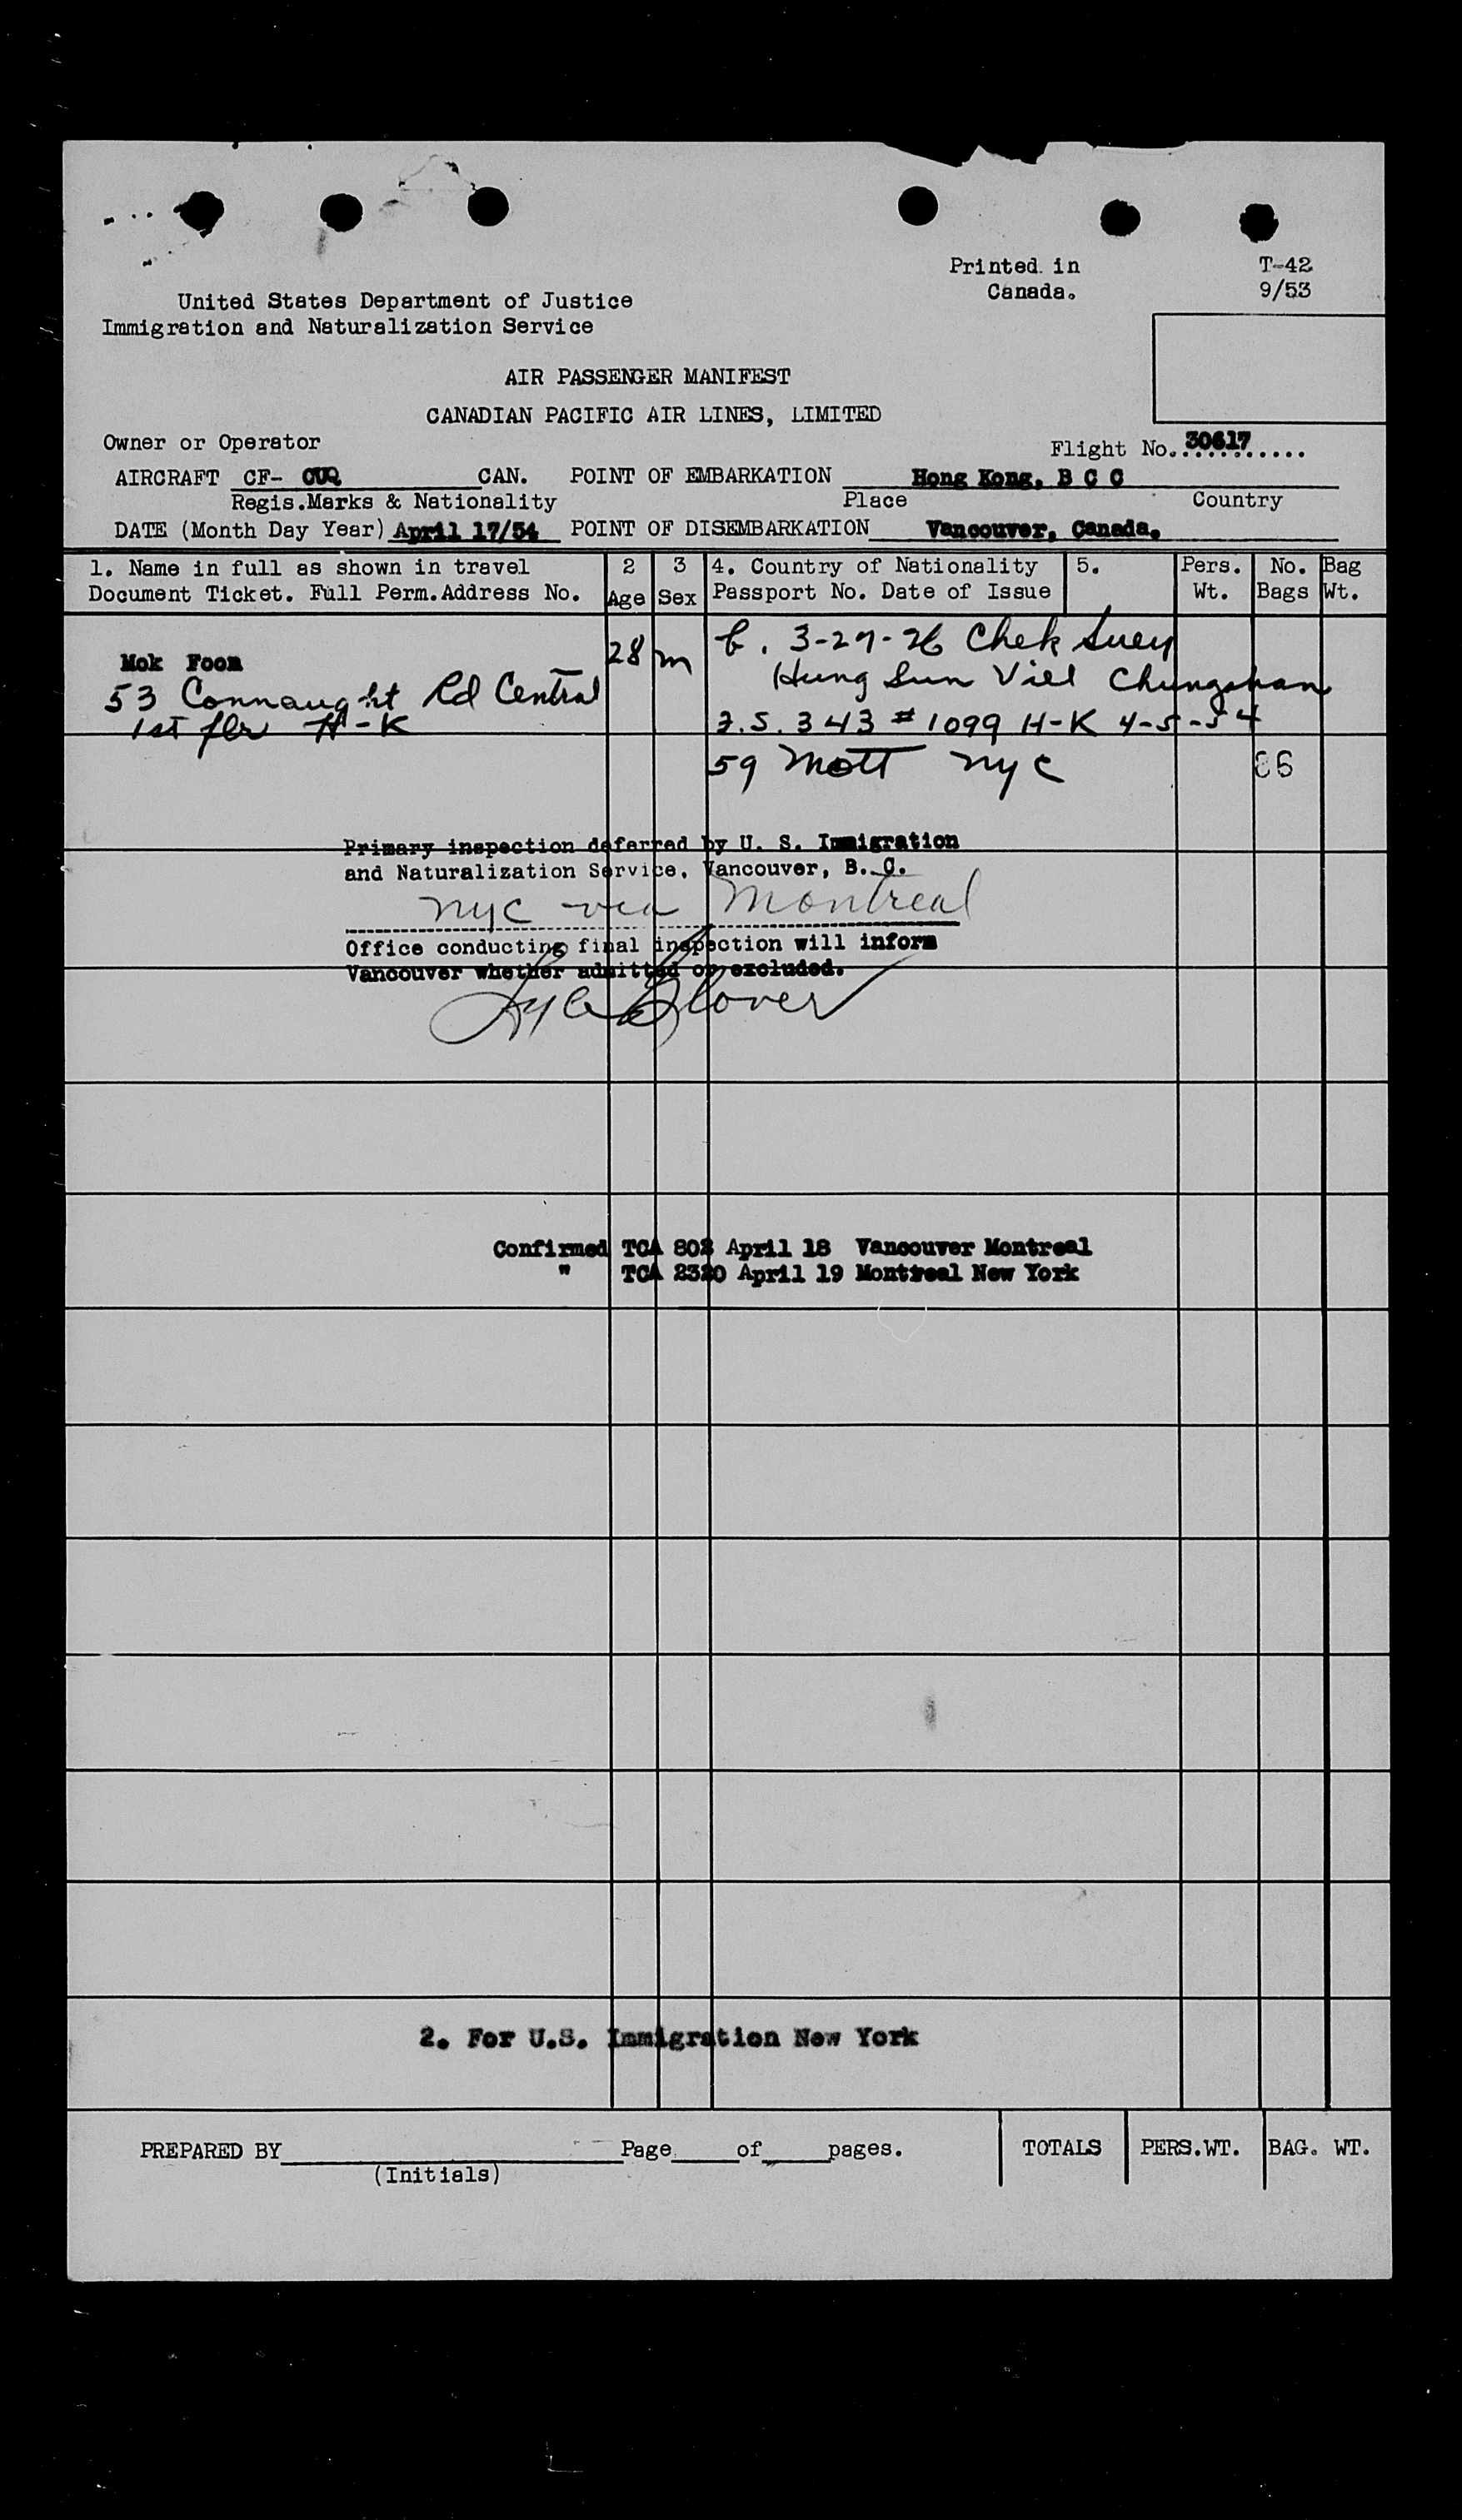 Printed in T-42
Canada. 9/53
United States Department of Justice
Immigration and Naturalization Service
AIR PASSENGER MANIFEST
CANADIAN PACIFIC AIR LINES, LIMITED
Owner or Operator Flight No. 30617
AIRCRAFT CF- CUQ CAN. POINT OF EMBARKATION Hong Kong, B C C
Regis.Marks & Nationality Place Country
DATE (Month Day Year) April 17/54 POINT OF DISEMBARKATION Vancouver, Canada.
1. Name in full as shown in travel 2 3 4. Country of Nationality 5. Pers. No. Bag
Document Ticket. Full Perm.Address No. Age Sex Passport No. Date of Issue Wt. Bags Wt.
Mok Foon 28 m b. 3-27-26 Chek Suey
53 Connaught Rd Central Hung Sun Vill Chungshan
1st flr H-K F.S. 343 # 1099 H-K 4-5-54
59 Mott NYC 86
Primary inspection deferred by U. S. Immigration
and Naturalization Service, Vancouver, B. C.
NYC via Montreal
Office conducting final inspection will inform
Vancouver whether admitted or excluded.
Glover
Confirmed TCA 802 April 18 Vancouver Montreal
" TCA 2320 April 19 Montreal New York
2. For U.S. Immigration New York
PREPARED BY Page of pages. TOTALS PERS.WT. BAG. WT.
(Initials)